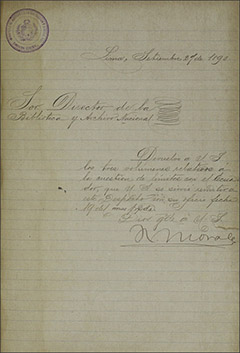 Lima, Setiembre 27 de 1890
Sor. Director de la
Biblioteca y Archivo Nacional
Devuelvo á U.S.
los tres volumenes relativos á
la cuestion de limites con el Ecua
dor, que U.S. se sirvió
este Despacho con su oficio fecha
19 del
Dios gde á U.S.
R Morales